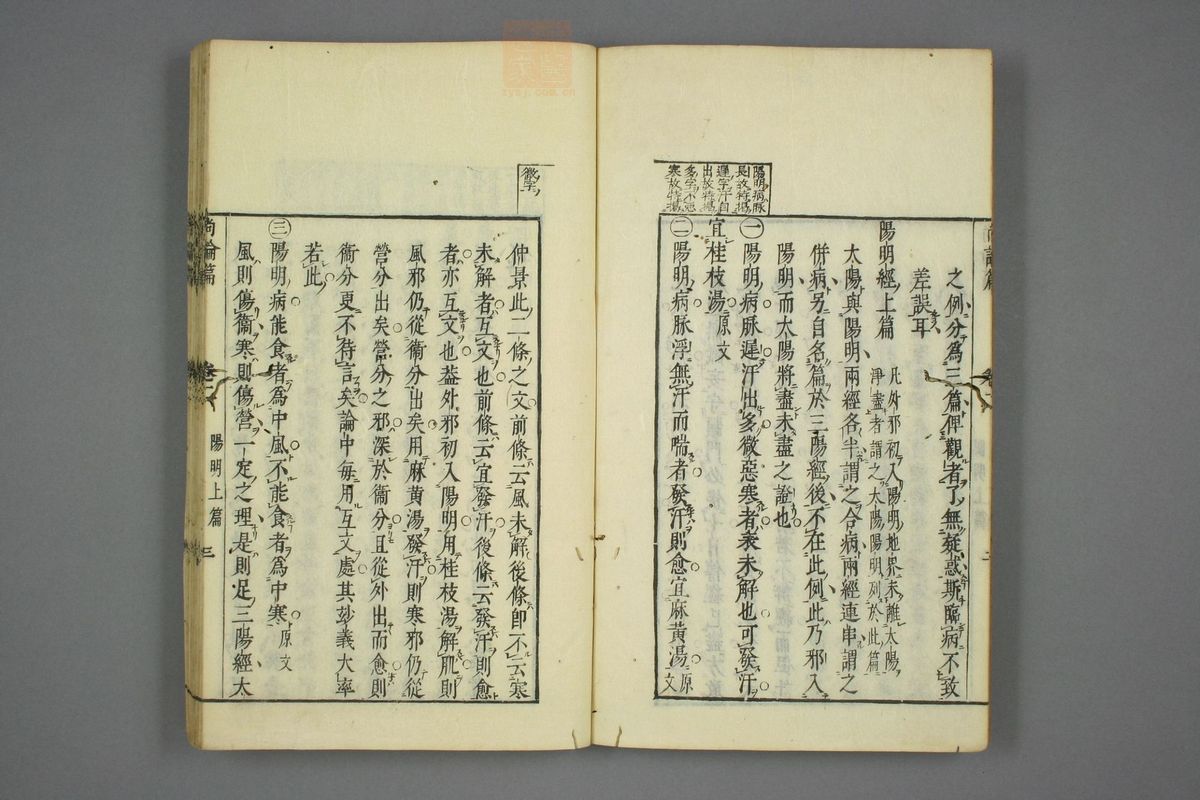 之例分爲三篇俾觀者了無疑惑斯臨病不致
差誤耳
陽明經上篇
凡外邪初入陽明地界未離太陽
淨盡者謂之太陽陽明列於此篇
太陽與陽明兩經各半謂之合病兩經連串謂之
併病另自名篇於三陽經後不在此例此乃邪入
陽明而太陽將盡未盡之證也
陽明病脉
長故特揭
遲字汗自
出故特揭
多字不惡
寒故特揭
㊀陽明病脉遲汗出多微惡寒者表未解也可發汗
宜桂枝湯原文
㊁陽明病脉浮無汗而喘者發汗則愈宜麻黄湯原文
微字
仲景此二條之文前條云風未解後條即不云寒
未解者互文也前條云宜發汗後條云發汗則愈
者亦互文也葢外邪初入陽明用桂枝湯解肌則
風邪仍從衞分出矣用麻黄湯發汗則寒邪仍從
營分出矣營分之邪深於衞分且從外出而愈則
衞分更不待言矣論中每用互文處其妙義大率
若此
㊂陽明病能食者爲中風不能食者爲中寒原文
風則傷衞寒則傷營一定之理是則足三陽經太
尚論篇
卷二
陽明上篇
三
zysj.com.cn